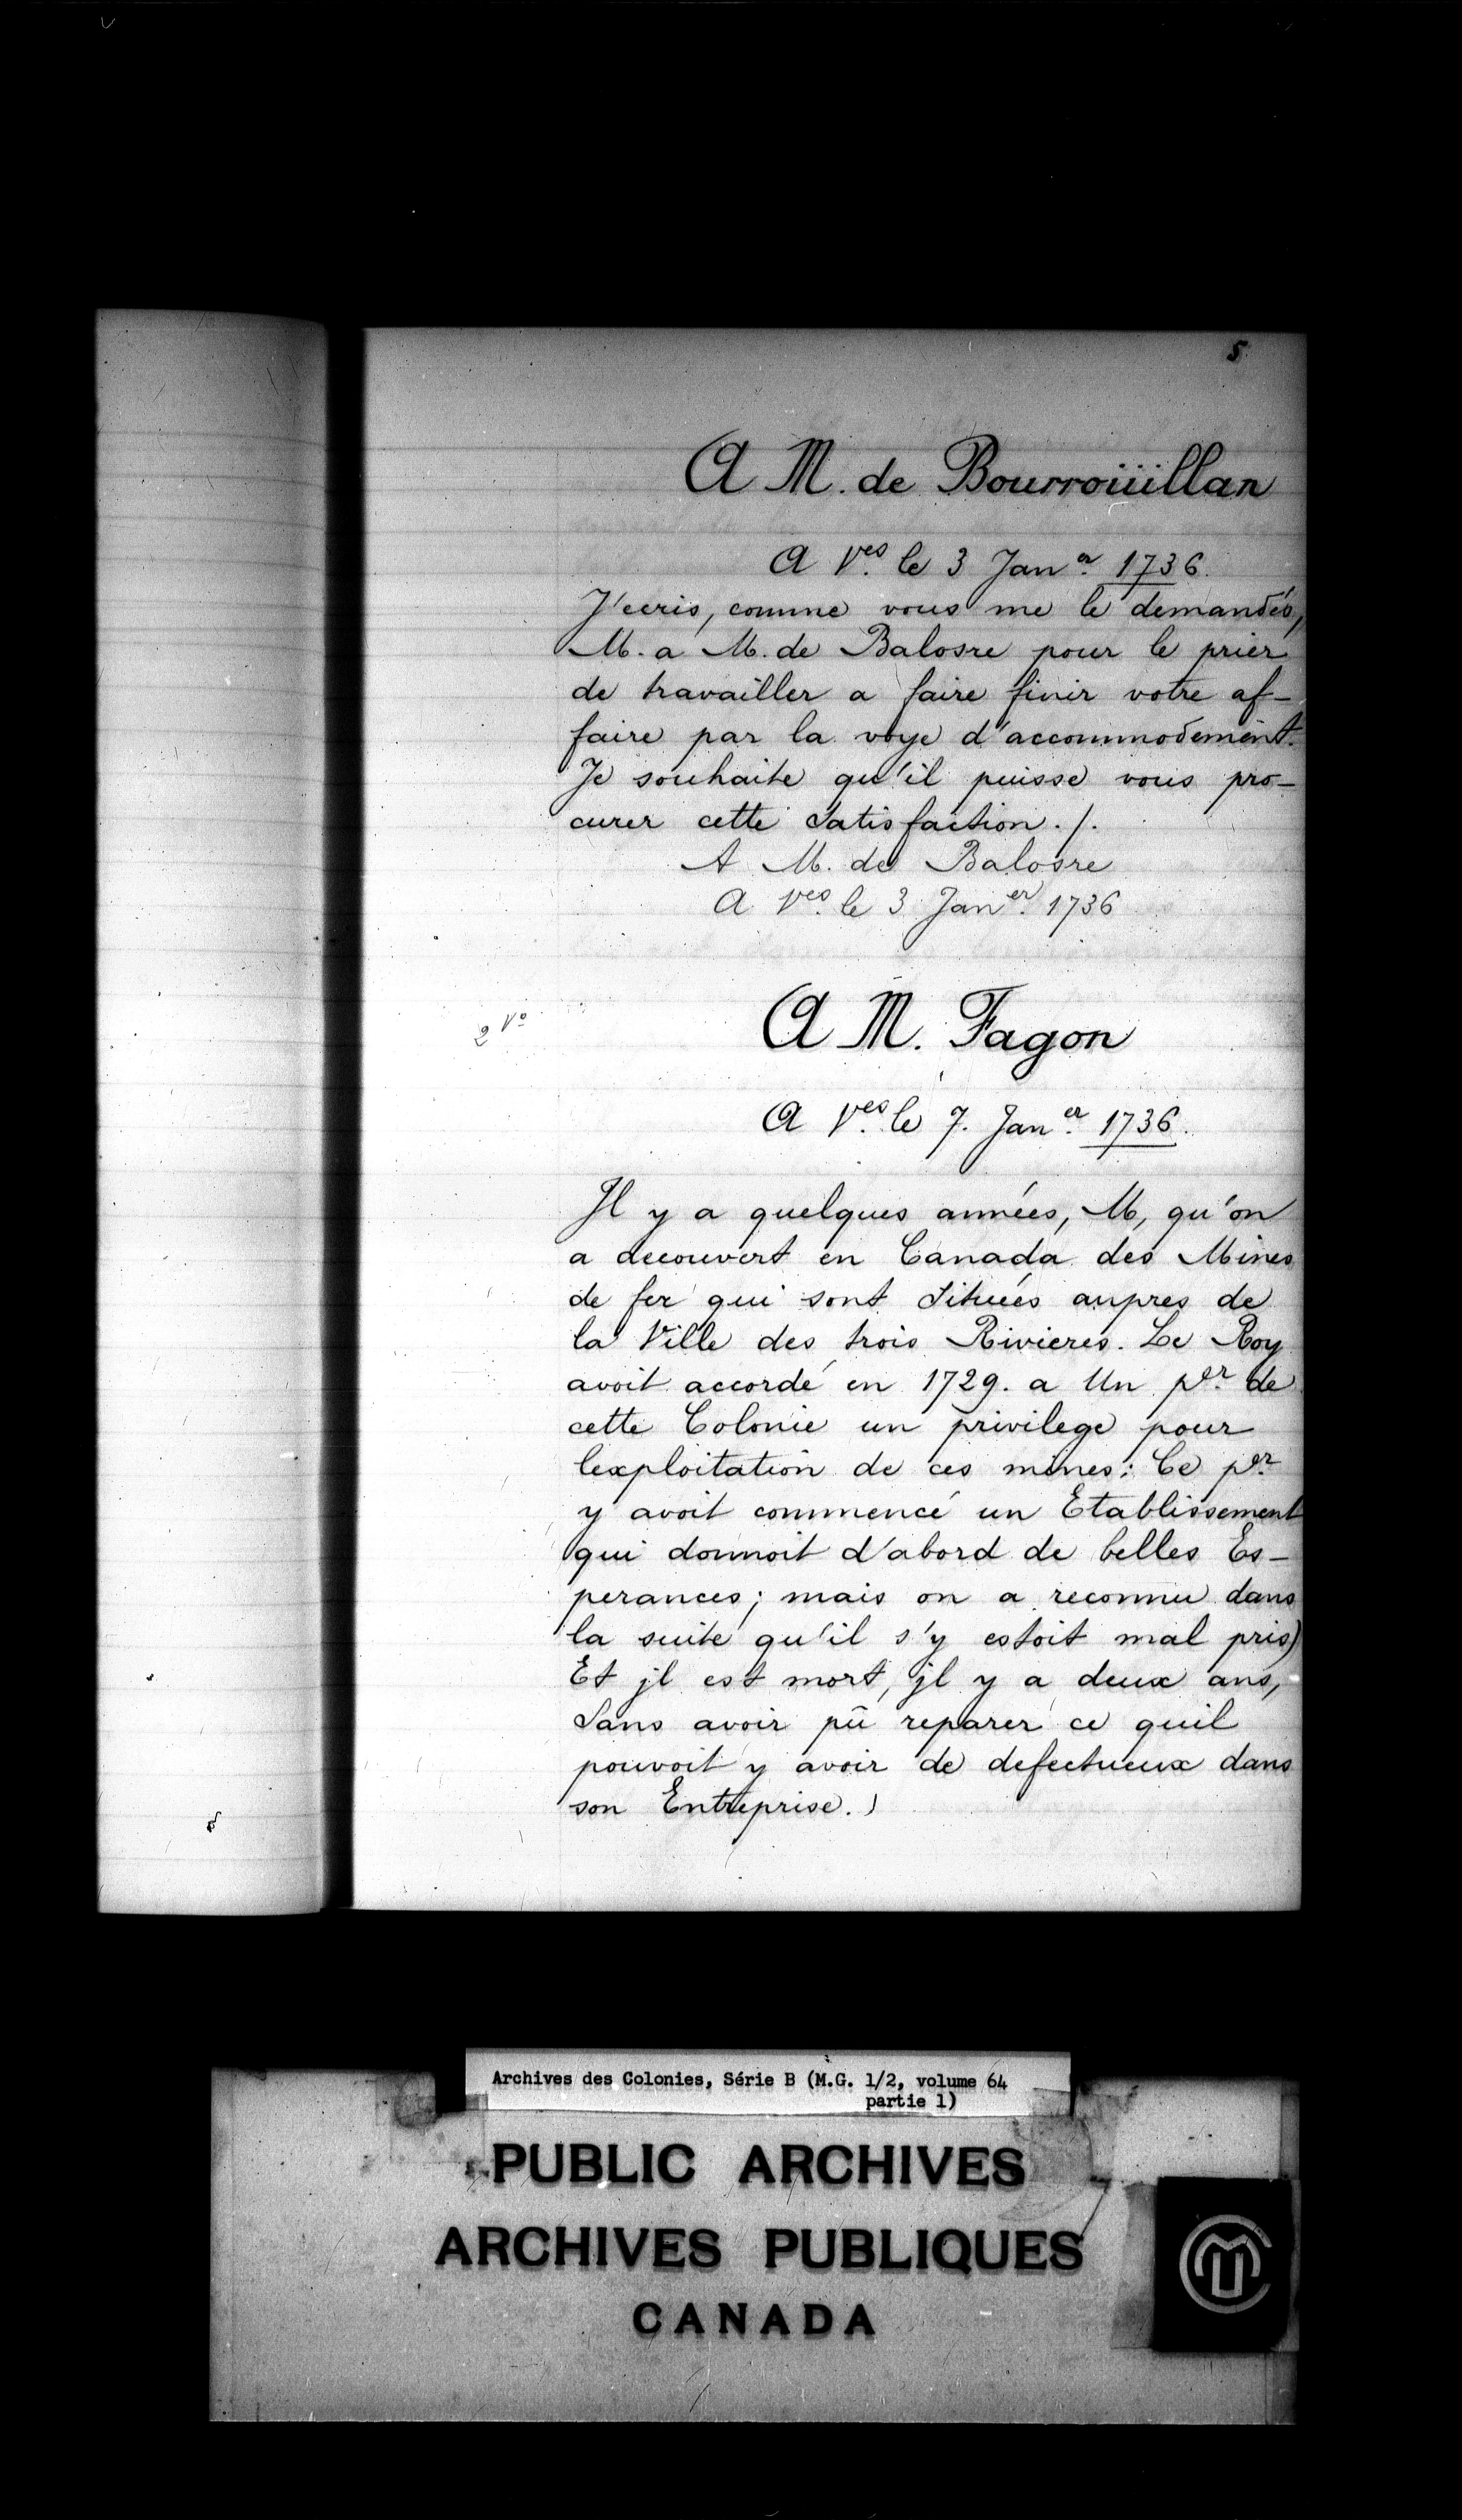 5
A M. de Bourroüillan
A Ves. le 3 Janer. 1736.
J'ecris, comme vous me le demandés,
M. a M. de Balosre pour le prier
de travailler a faire finir votre af-
faire par la voye d'accommodement.
Je souhaite qu'il puisse vous pro-
curer cette Satisfaction. /.
A M. de Balosre
A Ves. le 3 Janer. 1736
2 Vo
A M. Fagon
A Ves. le 7. Janer. 1736.
Il y a quelques années, M, qu'on
a decouvert en Canada des Mines
de fer qui sont Situées aupres de
la Ville des trois Rivieres. Le Roy
avoit accordé en 1729. a Un per. de
cette Colonie un privilege pour
lexploitation de ces mines: Ce per.
y avoit commencé un Etablissement
qui donnoit d'abord de belles Es-
perances; mais on a reconnu dans
la suite qu'il s'y estoit mal pris)
Et jl est mort, jl y a deux ans,
Sans avoir pû reparer ce quil
pouvoit y avoir de defectueux dans
son Entreprise.)
Archives des Colonies, Série B (M.G. 1/2, volume 64
partie 1)
PUBLIC ARCHIVES
ARCHIVES PUBLIQUES
CANADA